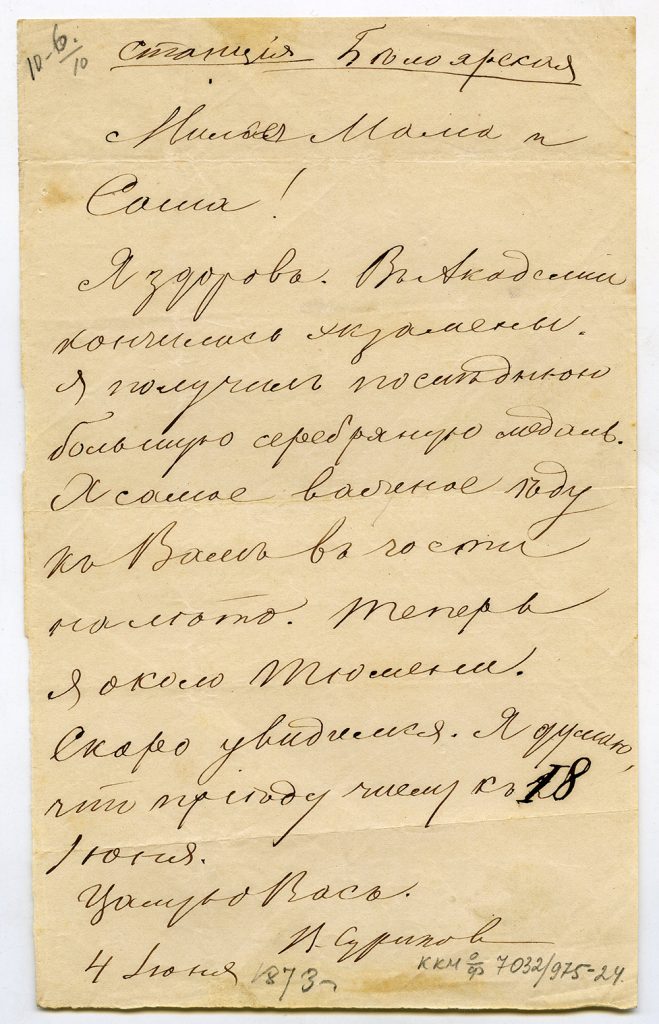 10-6/10
станція Бѣлоярская
Милые Мама и
Саша!
Я здоровъ. Въ Академіи
кончились экзамены.
Я получилъ послѣднюю
большую серебряную медаль.
А самое важное ѣду
къ Вамъ въ гости
на лѣто. Теперь
я около Тюмени.
Скоро увидимся. Я думаю,
что пріѣду числу къ 18
Іюня.
Цалую Васъ.
В. Суриковъ
4 Іюня 1873
ККМ о/ф 7032/975-24